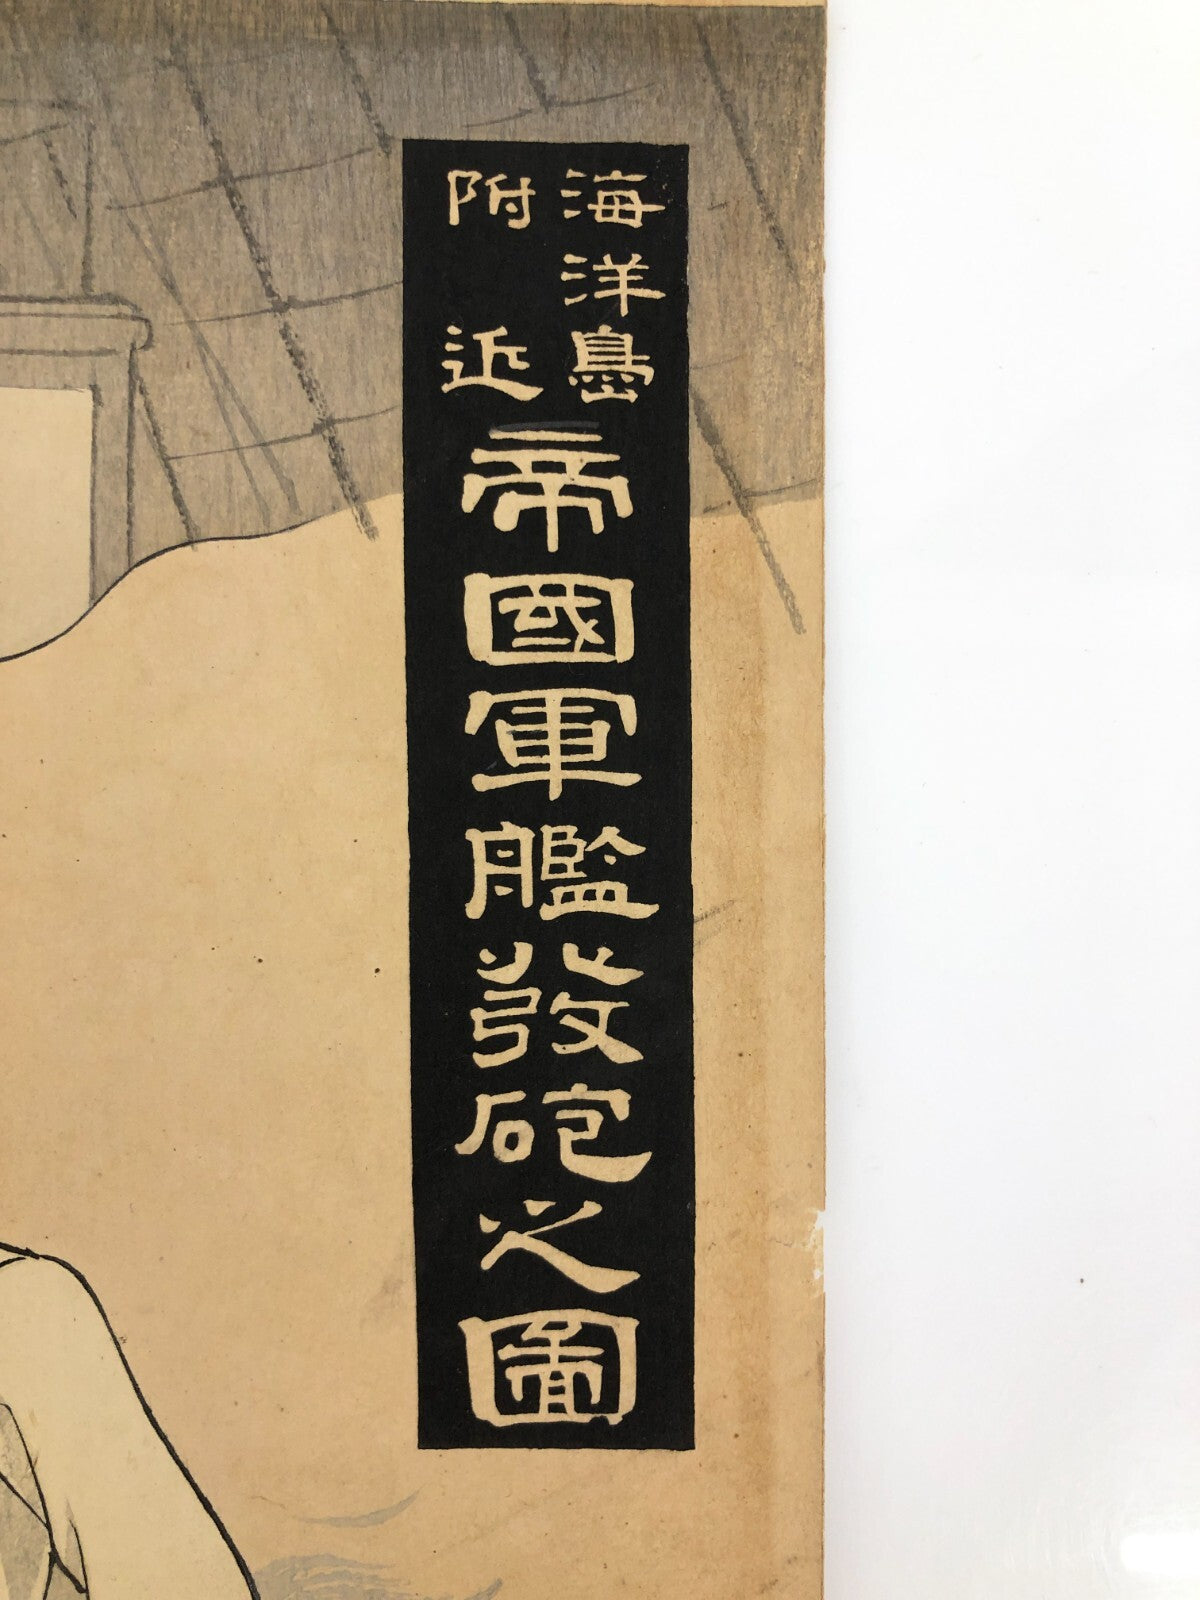 海洋島
附近
帝國軍艦發砲之圖